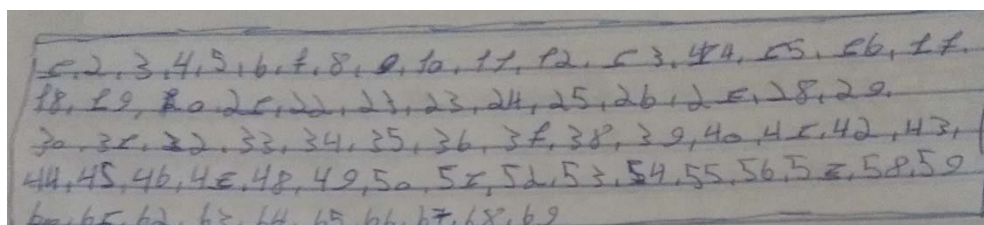 1, 2, 3, 4, 5, 6, 7, 8, 9, 10, 11, 12, 13, 14, 15, 16, 17.
18, 19, 20, 21, 22, 23, 23, 24, 25, 26, 27, 28, 29.
30, 31, 32, 33, 34, 35, 36, 37, 38, 39, 40, 41, 42, 43,
44, 45, 46, 47, 48, 49, 50, 51, 52, 53, 54, 55, 56, 57, 58, 59
60, 61, 62, 63, 64, 65, 66, 67, 68, 69